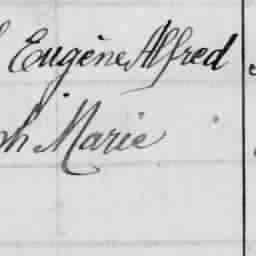 Eugène Alfred
ph Marie